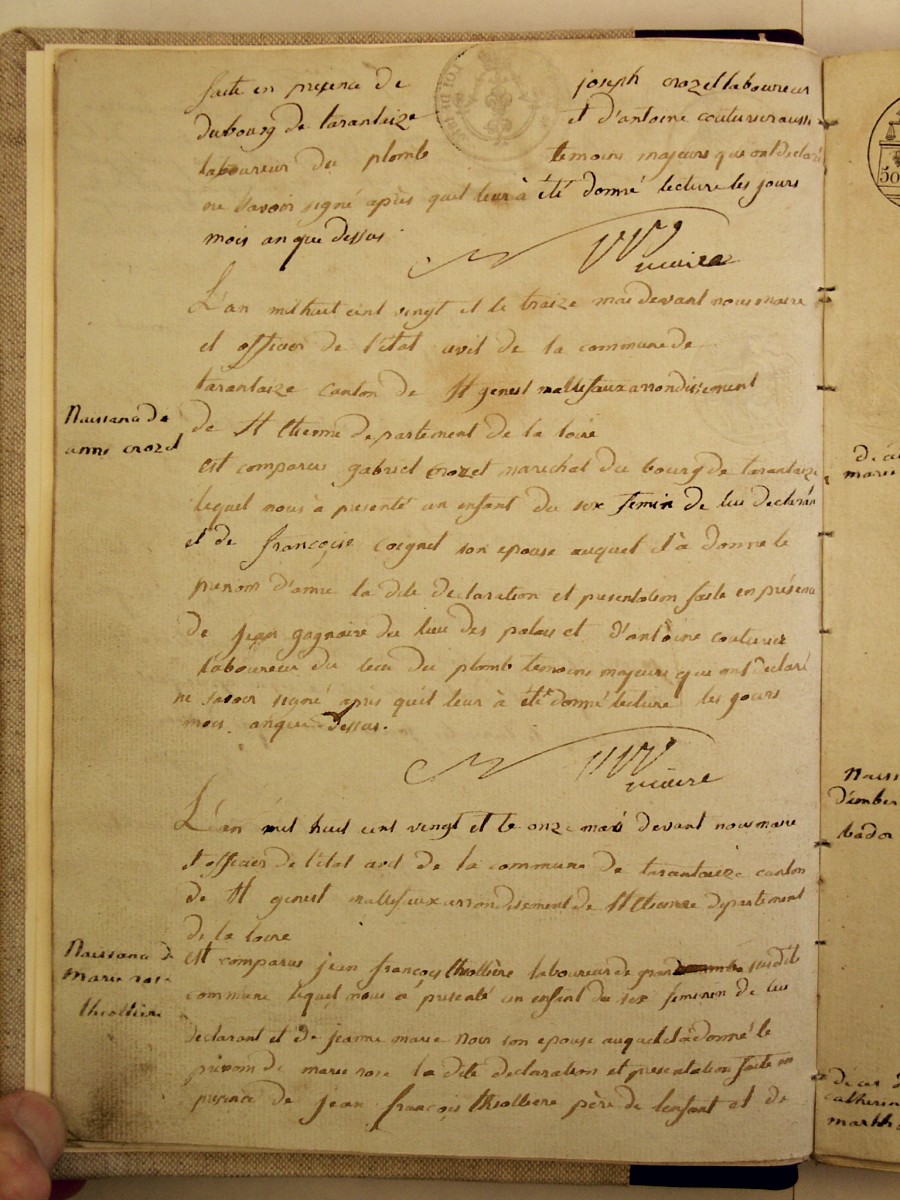 faite en presence de joseph crozet laboureur
du bourg de tarantaize et d'antoine couturier aussi
laboureur du plomb temoins majeurs que ont declaré
ne savoir signé après quil leur à été donné lecture les jours
mois an que dessus
maire
L'an mil huit cent vingt et le traize mai devant nous maire
et officier de l'état civil de la commune de
tarantaize canton de St genest mallifaux arrondissement
de St Etienne departement de la loire
Naissance de
anne crozet
est comparus gabriel crozet marechal du bourg de tarantaize
lequel nous à presenté un enfant du sex feminin de lui declarant
et de françoise coignet son epouse auquel il à donné le
prenom d'anne la dite declaration et presentation faite en présence
de jean gagnaire du lieu des palais et d'antoine couturier
laboureur du lieu du plomb temoins majeurs que ont declaré
ne savoir signé apris quil leur à été donné lecture les jours
mois an que dessus.
maire
L'an mil huit cent vingt et le onze mai devant nous maire
et officier de l'état civil de la commune de tarantaize canton
de St genest mallifaux arrondisement de St Etienne departement
de la loire
Naissance de
marie rose
thiolliere
est comparus jean françois thiollière laboureur de susdit
commune lequel nous a présenté un enfant du sex feminin de lui
declarant et de jeanne marie son epouse auquel il à donné le
prenom de marie rose la dite declaration et presentation faite en
presence de jean françois thiolliere père de l'enfant et de
50
marie
Naiss
bador
catherin